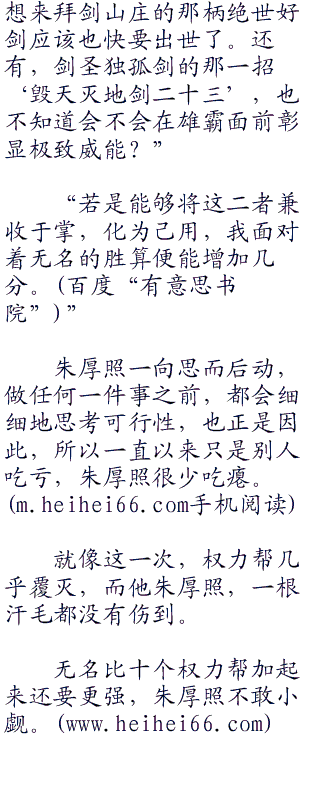 想来拜剑山庄的那柄绝世好
剑应该也快要出世了。还
有，剑圣独孤剑的那一招
‘毁天灭地剑二十三’，也
不知道会不会在雄霸面前彰
显极致威能？”
“若是能够将这二者兼
收于掌，化为己用，我面对
着无名的胜算便能增加几
分。(百度“有意思书
院”)”
朱厚照一向思而后动，
做任何一件事之前，都会细
细地思考可行性，也正是因
此，所以一直以来只是别人
吃亏，朱厚照很少吃瘪。
(m.heihei66.com手机阅读)
就像这一次，权力帮几
乎覆灭，而他朱厚照，一根
汗毛都没有伤到。
无名比十个权力帮加起
来还要更强，朱厚照不敢小
觑。(www.heihei66.com)